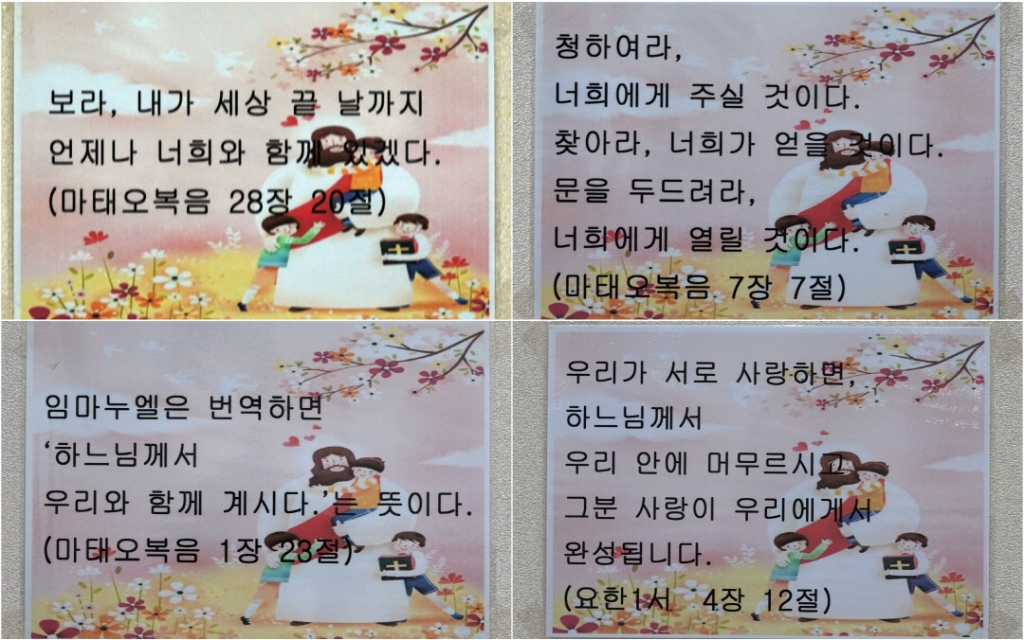 보라, 내가 세상 끝 날까지
언제나 너희와 함께 있겠다.
(마태오복음 28장 20절)
청하여라,
너희에게 주실 것이다.
찾아라, 너희가 얻을 것이다.
문을 두드려라,
너희에게 열릴 것이다.
(마태오복음 7장 7절)
임마누엘은 번역하면
‘하느님께서
우리와 함께 계시다.’는 뜻이다.
(마태오복음 1장 23절)
우리가 서로 사랑하면,
하느님께서
우리 안에 머무르시고
그분 사랑이 우리에게서
완성됩니다.
(요한1서 4장 12절)